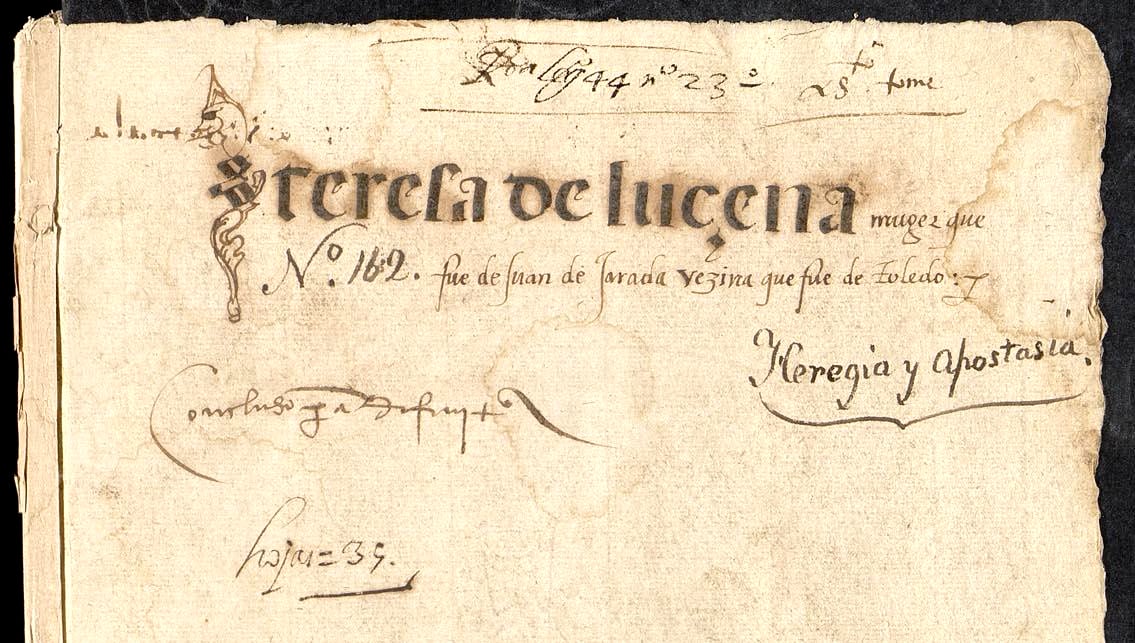 leg 44 nº 23º
tome
teresa de luçena muger que
Nº. 162. fue de Juan de Jarada vezina que fue de Toledo:
Heregia y Apostasia.
Concluso pa difinit
hojas = 35.